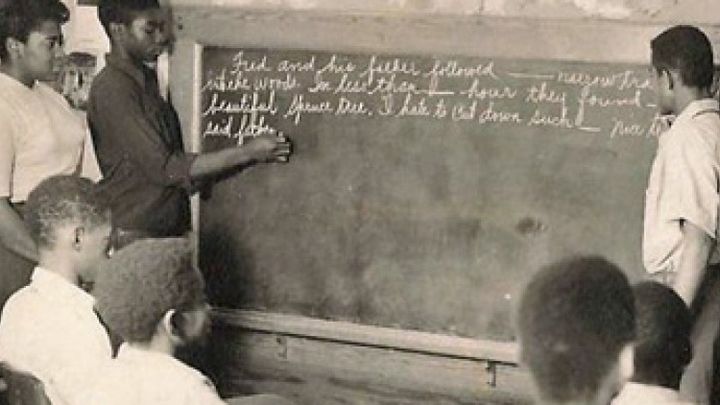 Fred and his father followed ___ narrow tra
in the woods. In less than __ hour they found __
beautiful Spruce tree. I hate to cut down such __ nice t
said father